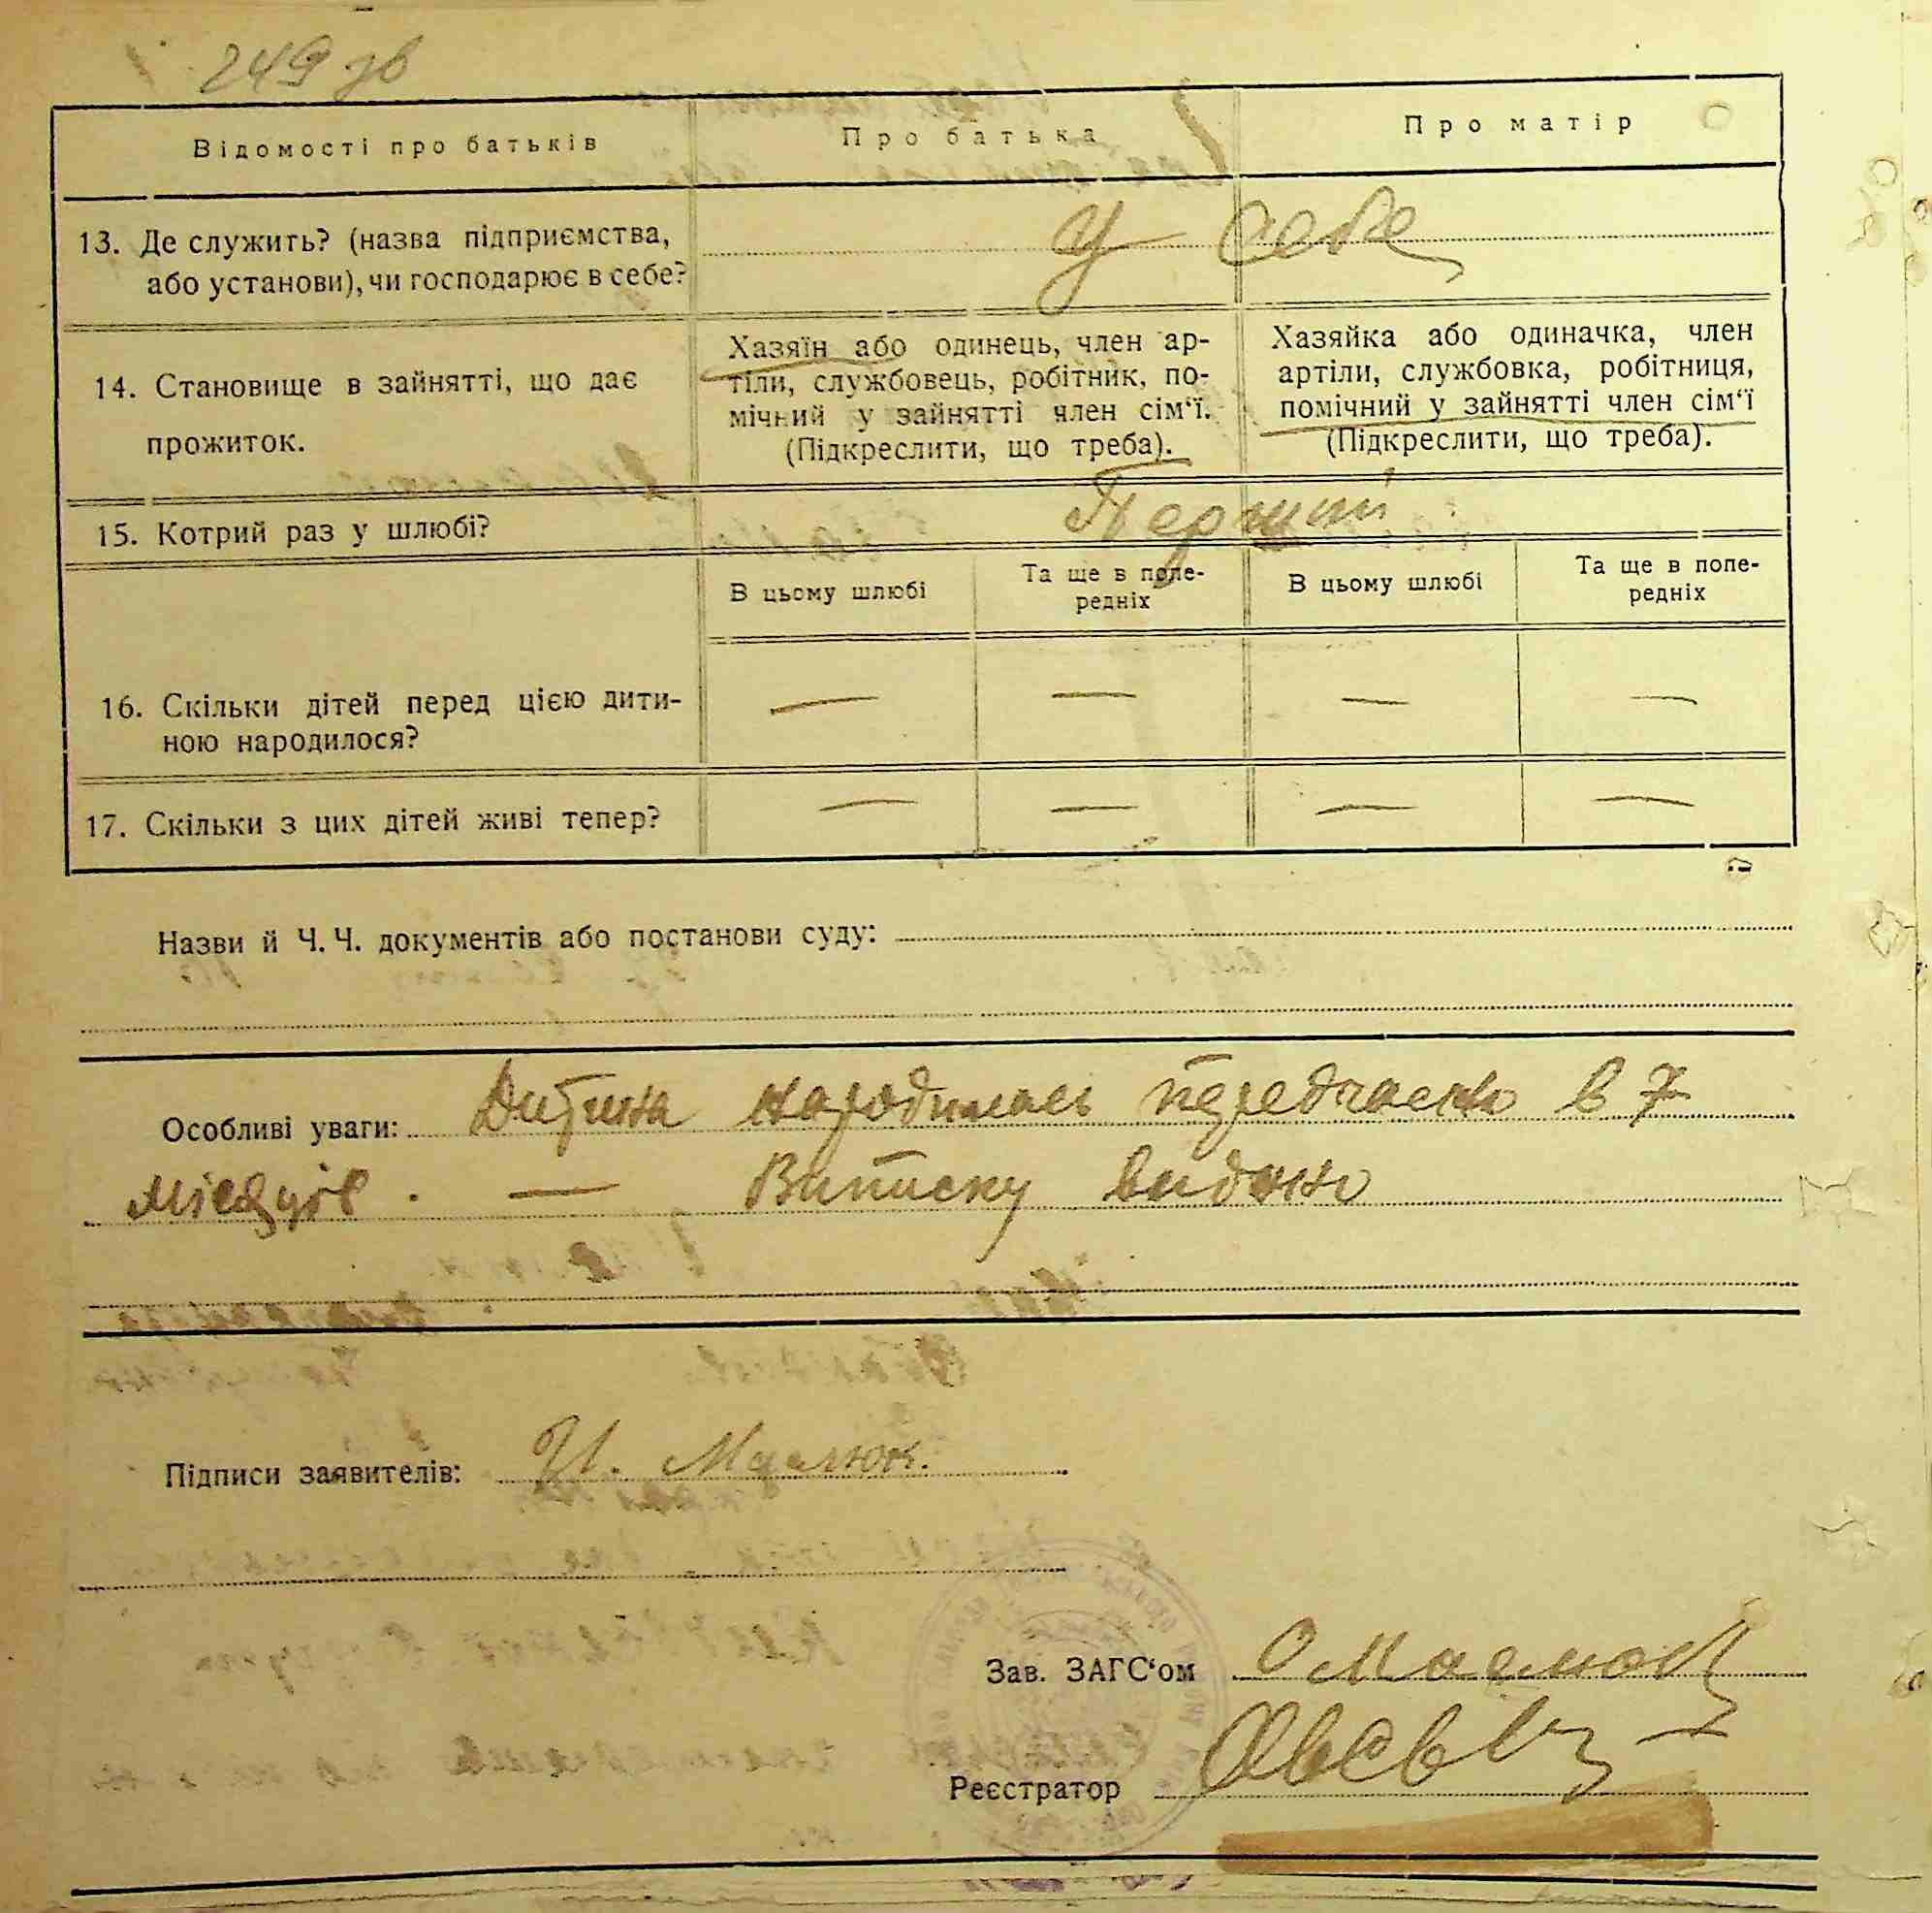 249 зв
Відомості про батьків
Про батька
Про матір
13. Де служить? (назва підприємства,
або установи), чи господарює в себе?
у себе
14. Становище в зайнятті, що дає
прожиток.
Хазяїн або одинець, член ар-
тіли, службовець, робітник, по-
мічний у зайнятті член сім‘ї.
(Підкреслити, що треба).
Хазяйка або одиначка, член
артіли, службовка, робітниця,
помічний у зайнятті член сім‘ї
(Підкреслити, що треба).
15. Котрий раз у шлюбі?
Перший
В цьому шлюбі
Та ще в попе-
редніх
В цьому шлюбі
Та ще в попе-
редніх
16. Скільки дітей перед цією дити-
ною народилося?
— — — —
17. Скільки з цих дітей живі тепер?
— — — —
Назви й Ч. Ч. документів або постанови суду:
Особливі уваги: Дитина народилась передчасно в 7
місяців. — Виписку видано
Підписи заявителів: И.
Зав. ЗАГС‘ом
Реєстратор